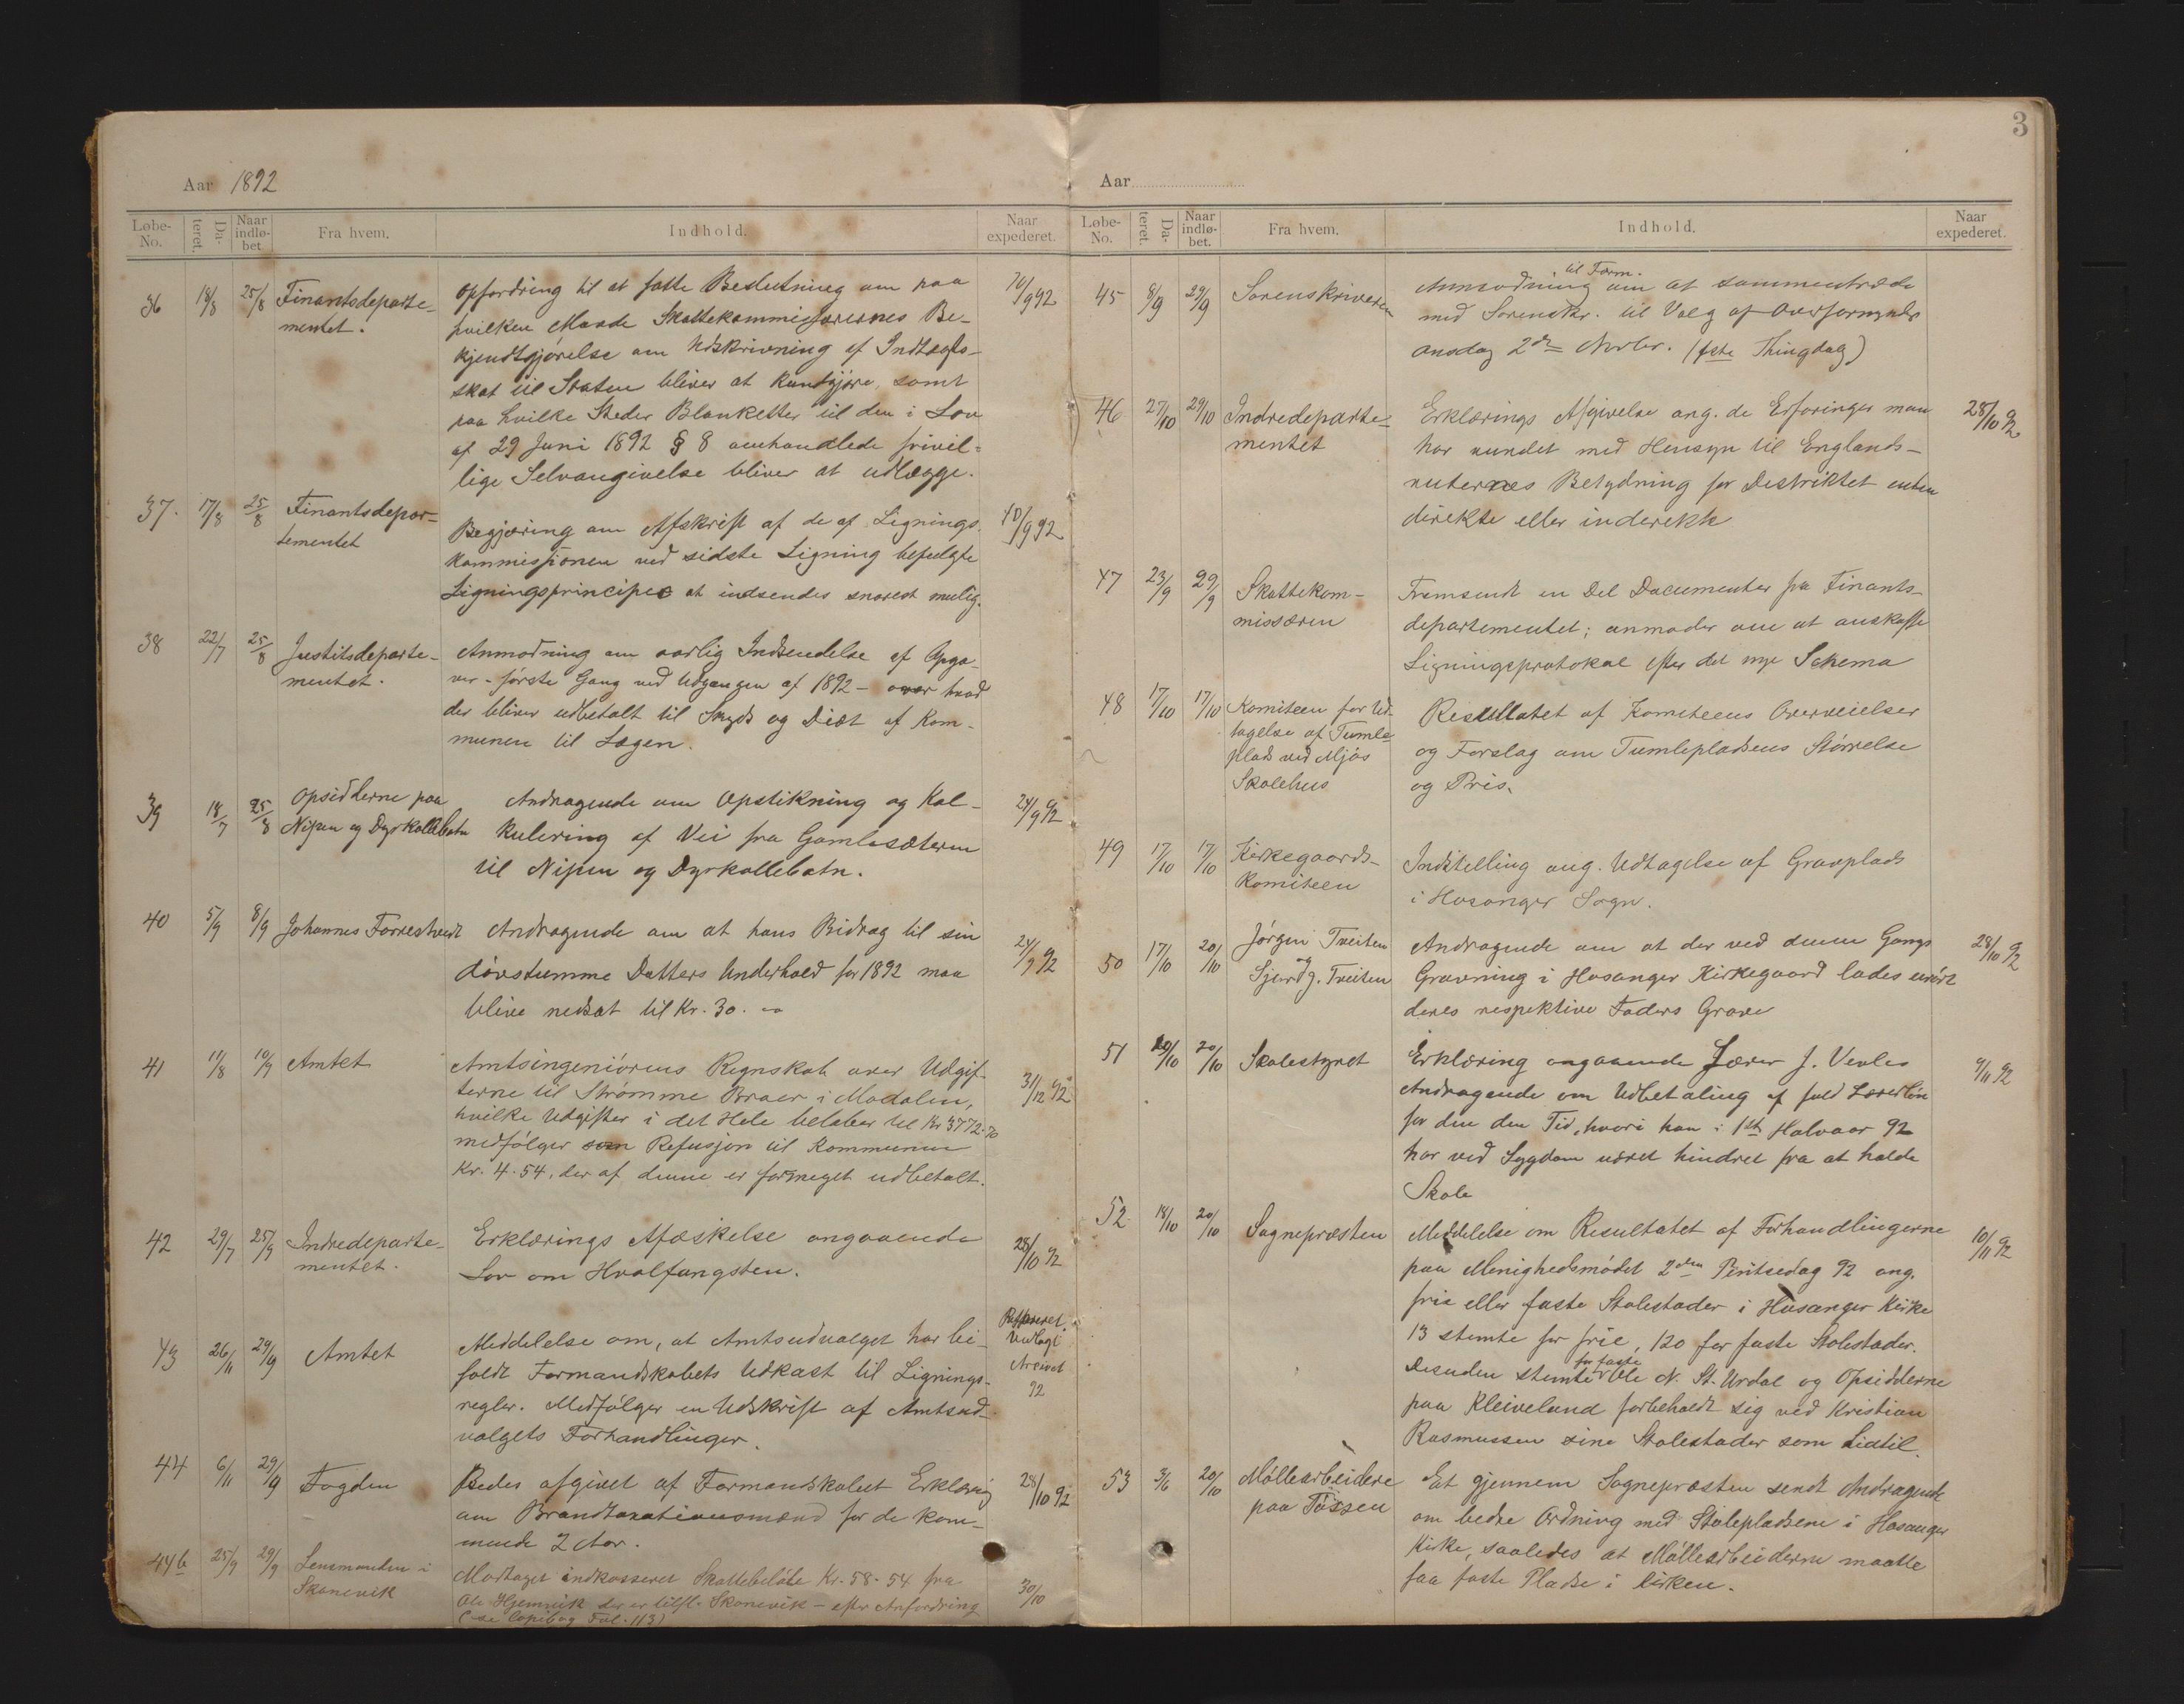 Aar 1892
Løbe-No. Dateret. Naar indløbet. Fra hvem. Indhold. Naar expederet.
36 18/8 25/8 Finantsdeparte-
mentet.
Opfordring til at fatte Beslutning om paa
hvilken Maade Skattekommissærernes Be-
kjendtgjørelse om Udskrivning af Indtægts-
skat til Staten bliver at kundgjøre, samt
paa hvilke Steder Blanketter til den i Lov
af 29 Juni 1892 § 8 omhandlede frivil-
lige Selvangivelse bliver at udlægge.
10/9 92
37. 17/8 25/8 Finantsdepar-
tementet
Begjæring om Afskrift af de af Lignings
kommissionen ved sidste Ligning befulgte
Ligningsprinciper at indsendes snarest mulig.
10/9 92
38 22/7 25/8 Justitsdeparte-
mentet.
Anmodning om aarlig Indsendelse af Opga-
ver - første Gang ved Udgangen af 1892 - over hvad
der bliver udbetalt til Skyds og Diæt af Kom-
munen til Lægen.
39 18/7 25/8 Opsidderne paa
Nipen og Dyrkolbotn
Andragende om Opstikning og Kal-
kulering af Vei fra Gamlesæteren
til Nipen og Dyrkollebotn.
24/9 92
40 5/9 8/9 Johannes Forrestvedt
Andragende om at hans Bidrag til sin
døvstumme Datters Underhold for 1892 maa
blive nedsat til Kr. 30. 00
24/9 92
41 11/8 10/9 Amtet
Amtsingeniørens Regnskab over Udgif
terne til Strømme Broer i Modalen,
hvilke Udgifter i det Hele beløber til Kr 3772.70
medfølger som Refusjon til Kommunen
Kr. 4.54, der af denne er formeget udbetalt.
31/12 92
42 29/7 25/9 Indredeparte-
mentet.
Erklærings Afæskelse angaaende
Lov om Hvalfangsten.
28/10 92
43 26/11 29/9 Amtet
Meddelelse om, at Amtsudvalget har bi-
faldt Formandskabets Udkast til Lignings-
regler. Medfølger en Udskrift af Amtsud-
valgets Forhandlinger.
Vedlagt
Arcivet
92
44 6/11 29/9 Fogden
Bedes afgivet af Formandskabet Erklæring
om Brandtaxationsmænd for de kom-
mende 2 Aar.
28/10 92
44b 25/9 29/9 Lensmanden i
Skonevik
Modtaget indkasseret Skattebeløb Kr. 58.54 fra
Ole Hjemvik der er tilfl. Skonevik - efter Anfordring
(se Copibog Fol. 113)
30/10
3
Aar
Løbe-No. Dateret. Naar indløbet. Fra hvem. Indhold. Naar expederet.
45 8/9 29/9 Sorenskriveren
Anmodning til Form. om at sammentræde
med Sorenskr. til Valg af Overformynder
onsdag 2den Novbr. (1ste Thingdag)
46 27/10 29/10 Indredeparte-
mentet
Erklærings Afgivelse ang. de Erfaringer man
har vundet med Hensyn til Englands-
ruternes Betydning for Distriktet enten
direkte eller inderekte
28/10 92
47 23/9 29/9 Skattekom-
missæren
Fremsendt en Del Documenter fra Finants-
departementet; anmoder om at anskaffe
Ligningsprotokol efter det nye Schema
48 17/10 17/10 Komiteen for Ud-
tagelse af Tumle-
plads ved Mjøs
Skolehus
Resultatet af Komiteens Overveielser
og Forslag om Tumlepladsens Størrelse
og Pris.
49 17/10 17/10 Kirkegaards-
komiteen
Indstilling ang. Udtagelse af Gravplads
i Hosanger Sogn.
50 17/10 20/10 Jørgen Tveiten
og
Sjurd J. Tveiten
Andragende om at der ved denne Gangs
Gravning i Hosanger Kirkegaard lades urørt
deres respektive Faders Grave
28/10 92
51 20/10 20/10 Skolestyret
Erklæring angaaende Lærer J. Vevles
Andragende om Udbetaling af fuld Lærerløn
for den den Tid, hvori han i 1ste Halvaar 92
har ved Sygdom været hindret fra at holde
Skole
9/11 92
52 18/10 20/10 Sognepræsten
Meddelelse om Resultatet af Forhandlingerne
paa Menighedsmødet 2den Pintsedag 92 ang.
frie eller faste Stolestader i Hosanger Kirke
13 stemte for frie, 120 for faste Stolestader.
Desuden stemte for faste Ole N. St. Urdal og Opsidderne
paa Kleiveland forbeholdt sig ved Kristian
Rasmussen sine Stolestader som hidtil.
10/11 92
53 3/6 20/10 Møllearbeidere
paa Tøssen
Et gjennem Sognepræsten sendt Andragende
om bedre Ordning med Stolepladsene i Hosanger
Kirke, saaledes at Møllearbeiderne maatte
faa faste Pladse i kirken.